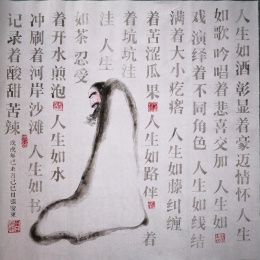 人生如酒彰显着豪迈情怀 人生
如歌吟唱着悲喜交加 人生如
戏演绎着不同角色 人生如线结
满着大小疙瘩 人生如藤纠缠
着苦涩瓜果 人生如路伴 着
着坑坑洼
洼 人生
如茶忍受
着开水煎泡 人生如水
冲刷着河岸沙滩 人生如书
记录着酸甜苦辣